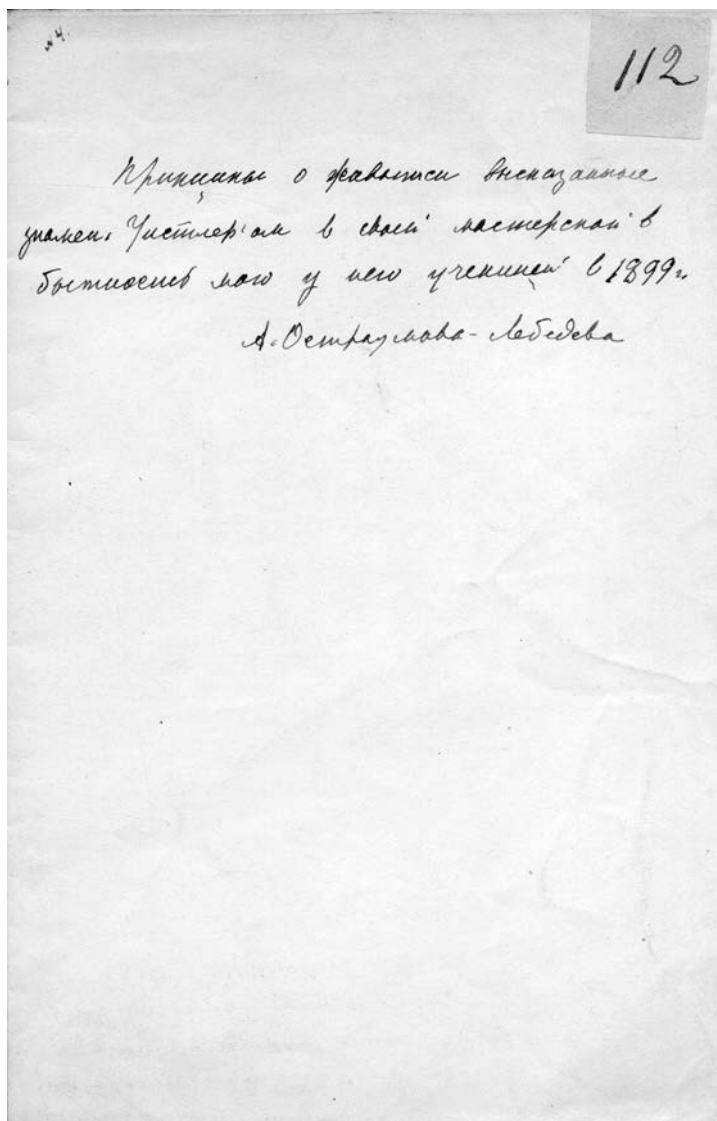 №4.
112
Принципы о живописи высказанные
знамен. Уистлер'ом в своей мастерской в
бытность мою у него ученицей в 1899 г.
А. Остроумова-Лебедева